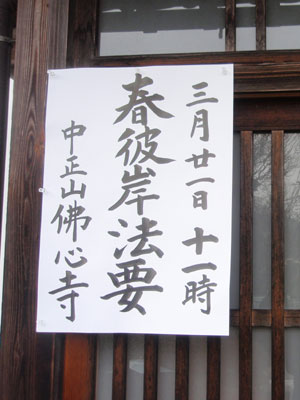 三月廿一日 十一時
春彼岸法要
中正山佛心寺